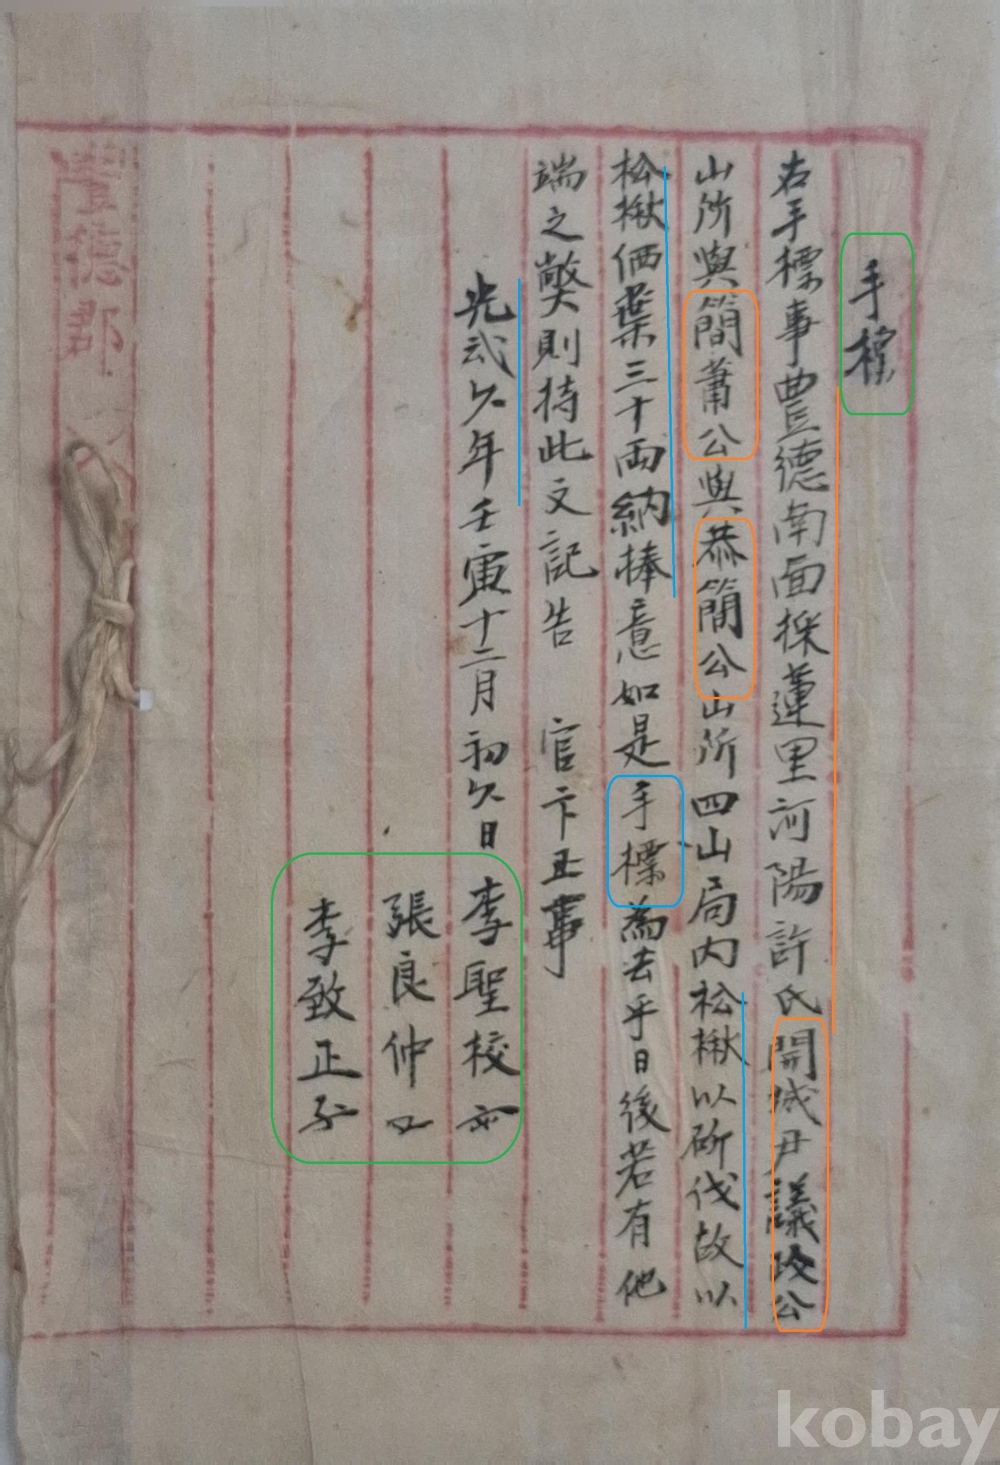 手標
右手標事豊德南面採蓮里河陽許氏開城尹議政公
山所與簡蕭公與恭簡公山所四山局内松楸以斫伐故以
松楸価葉三十両納捧意如是手標為去乎日後若有他
端之獘則持此文記告 官卞正事
光武六年壬寅十二月初六日 李聖校
張良仲
李致正
豊德郡
kobay